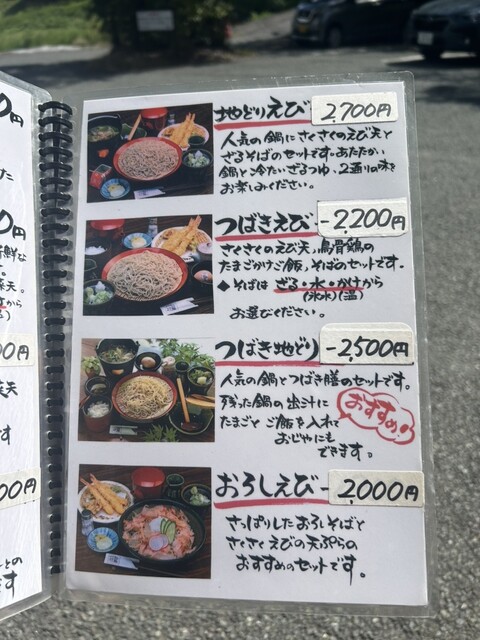 地どりえび 2,700円
人気の鍋にさくさくのえび天と
ざるそばのセットです。あたたかい
鍋と冷たいざるつゆ、2通りの味を
お楽しみください。
つばきえび-2,200円
さくさくのえび天、烏骨鶏の
たまごかけご飯、そばのセットです。
◆そばは ざる・水・かけから
(氷水)(温)
お選びください。
つばき地どり-2,500円
人気の鍋とつばき膳のセットです。
残った鍋の出汁に
たまごとご飯を入れて
おじやにも
できます。
おすすめ!
おろしえび-2,000円
さっぱりしたおろしそばと
さくさくえびの天ぷらの
おすすめのセットです。
0円
た
0円
新鮮な
天。
から
00円
天
す
00円
との
す